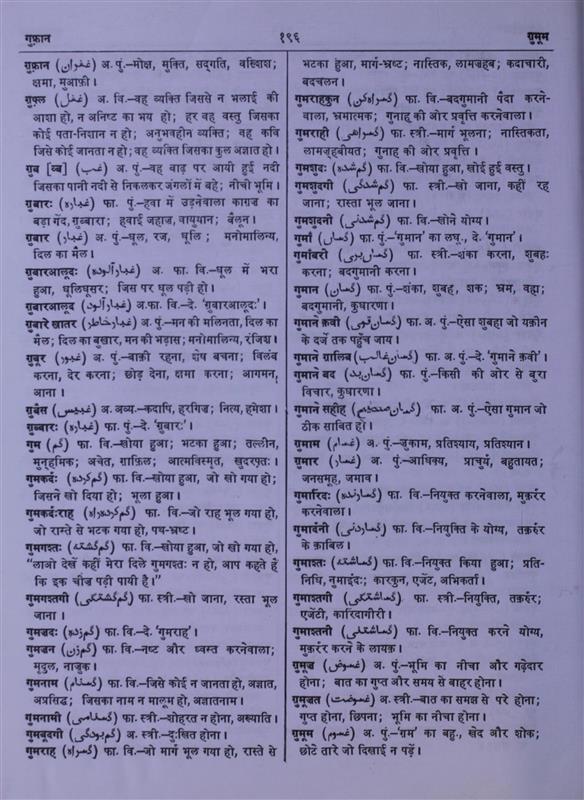 गुफ़्रान
१९६
ग़ुमूम
ग़ुफ़्रान (غفران) अ. पुं.–मोक्ष, मुक्ति, सद्गति, बख़्शिश;
क्षमा, मुआफ़ी।
ग़ुफ़्ल (غفل) अ. वि.–वह व्यक्ति जिससे न भलाई की
आशा हो, न अनिष्ट का भय हो; हर वह वस्तु जिसका
कोई पता-निशान न हो; अनुभवहीन व्यक्ति; वह कवि
जिसे कोई जानता न हो; वह व्यक्ति जिसका कुल अज्ञात हो।
ग़ुब [ब्ब] (غب) अ. पुं.–वह बाढ़ पर आयी हुई नदी
जिसका पानी नदी से निकलकर जंगलों में बहे; नीची भूमि।
ग़ुबारः (غباره) फा. पुं.–हवा में उड़नेवाला काग़ज़ का
बड़ा गेंद, ग़ुब्बारा; हवाई जहाज़, वायुयान; बैलून।
ग़ुबार (غبار) अ. पुं.–धूल, रज, धूलि; मनोमालिन्य,
दिल का मैल।
ग़ुबारआलूदः (غبارآلوده) अ. फा. वि.–धूल में भरा
हुआ, धूलिधूसर; जिस पर धूल पड़ी हो।
ग़ुबारआलूद (غبارآلود) अ.फा. वि.–दे. 'ग़ुबारआलूदः'।
ग़ुबारे ख़ातर (غبارخاطر) अ. पुं.–मन की मलिनता, दिल का
मैल; दिल का बुखार, मन की भड़ास; मनोमालिन्य, रंजिश।
ग़ुबूर (غبور) अ. पुं.–बाक़ी रहना, शेष बचना; विलंब
करना, देर करना; छोड़ देना, क्षमा करना; आगमन,
आना।
ग़ुबैस (غبیس) अ. अव्य.–कदापि, हरगिज़; नित्य, हमेशा।
ग़ुब्बारः (غباره) फा. पुं.–दे. 'ग़ुबारः'।
गुम (گم) फा. वि.–खोया हुआ; भटका हुआ; तल्लीन,
मुन्हमिक; अचेत, ग़ाफ़िल; आत्मविस्मृत, ख़ुदरफ़्तः।
गुमकर्दः (گم‌کرده) फा. वि.–खोया हुआ, जो खो गया हो;
जिसने खो दिया हो; भूला हुआ।
गुमकर्दःराह (گم‌کرده‌راه) फा. वि.–जो राह भूल गया हो,
जो रास्ते से भटक गया हो, पथ-भ्रष्ट।
गुमगश्तः (گم‌گشته) फा. वि.–खोया हुआ, जो खो गया हो,
"लाओ देखें कहीं मेरा दिले गुमगश्तः न हो, आप कहते हैं
कि इक चीज़ पड़ी पायी है।"
गुमगश्तगी (گم‌گشتگی) फा. स्त्री.–खो जाना, रास्ता भूल
जाना।
गुमज़दः (گم‌زده) फा. वि.–दे. 'गुमराह'।
गुमज़न (گم‌زن) फा. वि.–नष्ट और ध्वस्त करनेवाला;
मृदुल, नाज़ुक।
गुमनाम (گمنام) फा. वि.–जिसे कोई न जानता हो, अज्ञात,
अप्रसिद्ध; जिसका नाम न मालूम हो, अज्ञातनाम।
गुमनामी (گمنامی) फा. स्त्री.–शोहरत न होना, अख्याति।
गुमबूदगी (گم‌بودگی) अ. स्त्री.–दुःखित होना।
गुमराह (گمراه) फा. वि.–जो मार्ग भूल गया हो, रास्ते से
भटका हुआ, मार्ग-भ्रष्ट; नास्तिक, लामज़हब; कदाचारी,
बदचलन।
गुमराहकुन (گمراه‌کن) फा. वि.–बदगुमानी पैदा करने-
वाला, भ्रमात्मक; गुनाह की ओर प्रवृत्ति करनेवाला।
गुमराही (گمراهی) फा. स्त्री.–मार्ग भूलना; नास्तिकता,
लामज़हबीयत; गुनाह की ओर प्रवृत्ति।
गुमशुदः (گم‌شده) फा. वि.–खोया हुआ, खोई हुई वस्तु।
गुमशुदगी (گم‌شدگی) फा. स्त्री.–खो जाना, कहीं रह
जाना; रास्ता भूल जाना।
गुमशुदनी (گم‌شدنی) फा. वि.–खोने योग्य।
गुमाँ (گماں) फा. पुं.–'गुमान' का लघु., दे. 'गुमान'।
गुमाँबरी (گماں‌بری) फा. स्त्री.–शंका करना, शुबहः
करना; बदगुमानी करना।
गुमान (گمان) फा. पुं.–शंका, शुबह, शक; भ्रम, वह्म;
बदगुमानी, कुधारणा।
गुमाने क़वी (گمان‌قوی) फा. अ. पुं.–ऐसा शुबहा जो यक़ीन
के दर्जे तक पहुँच जाय।
गुमाने ग़ालिब (گمان‌غالب) फा. अ. पुं.–दे. 'गुमाने क़वी'।
गुमाने बद (گمان‌بد) फा. पुं.–किसी की ओर से बुरा
विचार, कुधारणा।
गुमाने सहीह (گمان‌صحیح) फा. अ. पुं.–ऐसा गुमान जो
ठीक साबित हो।
ग़ुमाम (غمام) अ. पुं.–ज़ुकाम, प्रतिश्याय, प्रतिश्यान।
ग़ुमार (غمار) अ. पुं.–आधिक्य, प्राचुर्य, बहुतायत;
जनसमूह, जमाव।
गुमारिंदः (گمارنده) फा. वि.–नियुक्त करनेवाला, मुक़र्रर
करनेवाला।
गुमार्दनी (گماردنی) फा. वि.–नियुक्ति के योग्य, तक़र्रुर
के क़ाबिल।
गुमाश्तः (گماشته) फा. वि.–नियुक्त किया हुआ; प्रति-
निधि, नुमाइंदः; कारकुन, एजेंट, अभिकर्ता।
गुमाश्तगी (گماشتگی) फा. स्त्री.–नियुक्ति, तक़र्रुर;
एजेंटी, कारिंदागीरी।
गुमाश्तनी (گماشتنی) फा. वि.–नियुक्त करने योग्य,
मुक़र्रर करने के लायक़।
ग़ुमूज़ (غموض) अ. पुं.–भूमि का नीचा और गढ़ेदार
होना; बात का गुप्त और समय से बाहर होना।
ग़ुमूज़त (غموضت) अ. स्त्री.–बात का समझ से परे होना;
गुप्त होना, छिपना; भूमि का नीचा होना।
ग़ुमूम (غموم) अ. पुं.–'ग़म' का बहु., खेद और शोक;
छोटे तारे जो दिखाई न पड़ें।